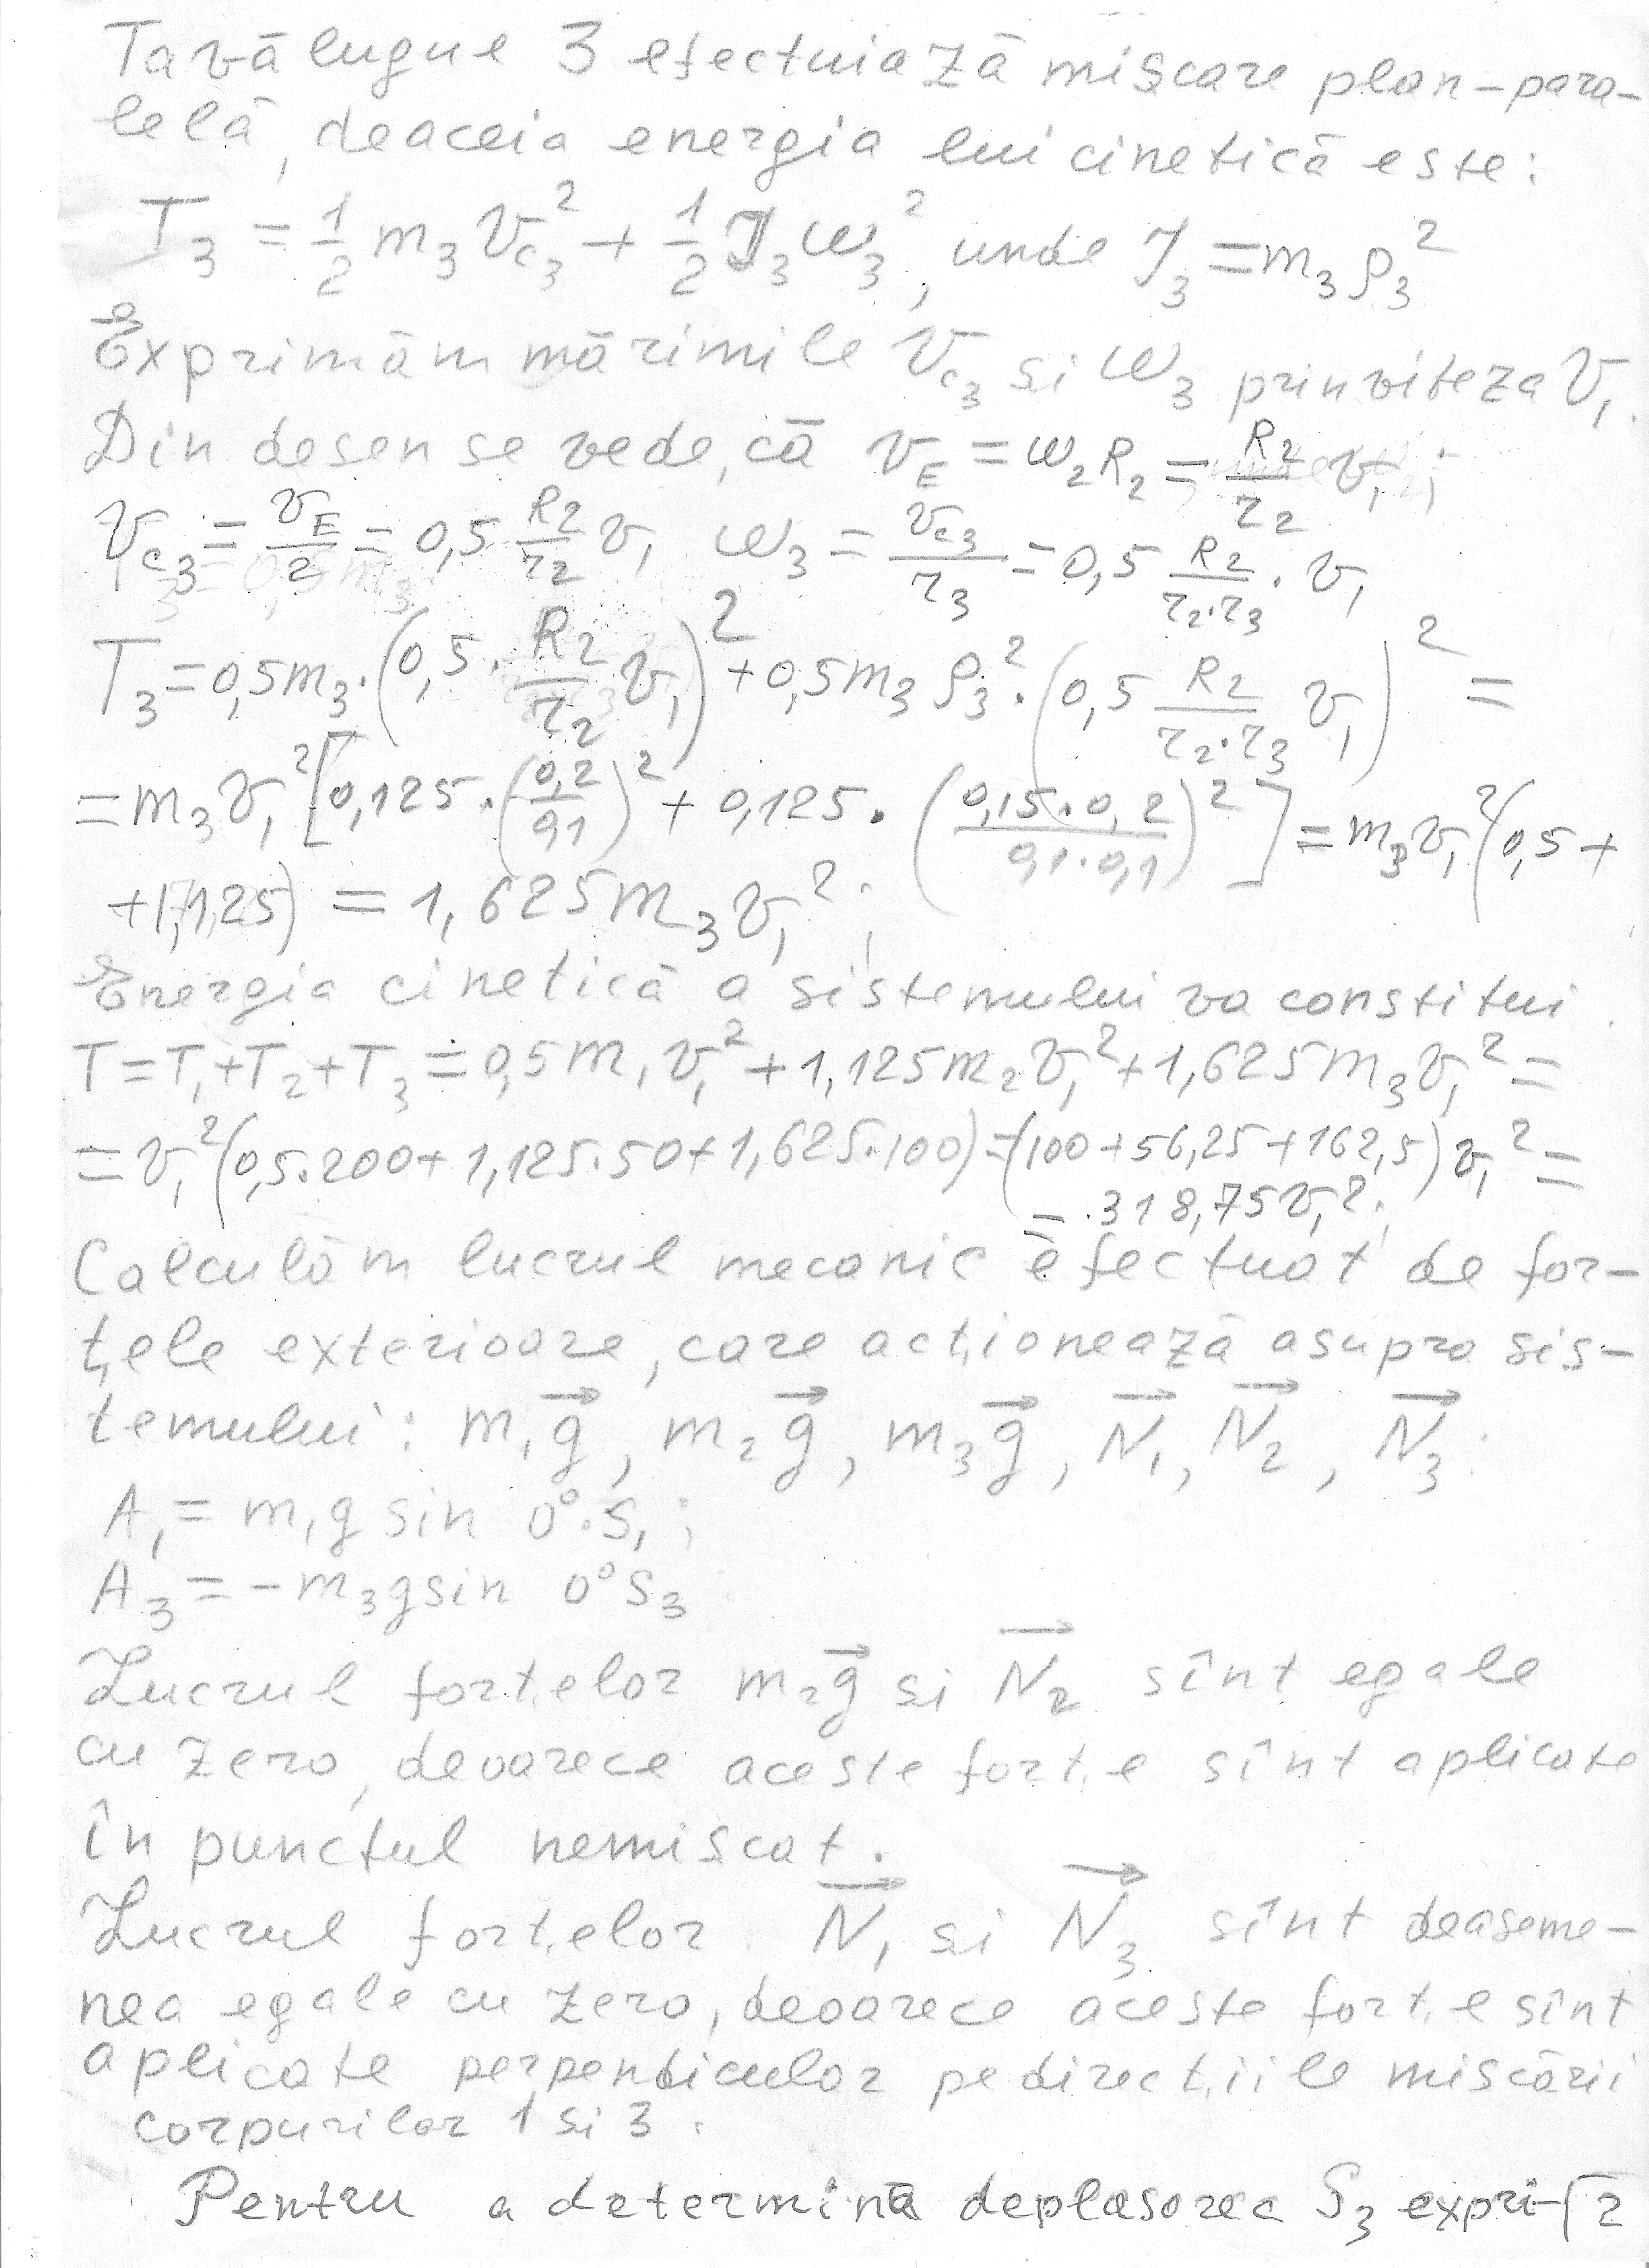 Tavălugul 3 efectuiază mișcare plan-para-
lelă, deaceia energia lui cinetică este:
T₃ = 1/2 m₃ v_c₃² + 1/2 J₃ ω₃², unde J₃ = m₃ ρ₃²
Exprimăm mărimile v_c₃ si ω₃ prin viteza v₁.
Din desen se vede, că v_E = ω₂R₂ = R₂/r₂ v₁;
v_c₃ = v_E/2 = 0,5 R₂/r₂ v₁ ω₃ = v_c₃/r₃ = 0,5 R₂/(r₂·r₃) · v₁
T₃ = 0,5m₃·(0,5·R₂/r₂ v₁)² + 0,5m₃ρ₃²·(0,5 R₂/(r₂·r₃) v₁)² =
= m₃v₁²[0,125·(0,2/0,1)² + 0,125·((0,15·0,2)/(0,1·0,1))²] = m₃v₁²(0,5+
+1,125) = 1,625m₃v₁²;
Energia cinetică a sistemului va constitui
T = T₁+T₂+T₃ = 0,5m₁v₁² + 1,125m₂v₁² + 1,625m₃v₁² =
= v₁²(0,5·200 + 1,125·50 + 1,625·100) = (100 + 56,25 + 162,5) v₁² =
= 318,75v₁²;
Calculăm lucrul mecanic efectuat de for-
țele exterioare, care acționează asupra sis-
temului: m₁g⃗, m₂g⃗, m₃g⃗, N⃗₁, N⃗₂, N⃗₃:
A₁ = m₁g sin 0°·S₁;
A₃ = -m₃g sin 0° S₃
Lucrul forțelor m₂g⃗ si N⃗₂ sînt egale
cu zero, deoarece aceste forțe sînt aplicate
în punctul nemișcat.
Lucrul forțelor N⃗₁ si N⃗₃ sînt deaseme-
nea egale cu zero, deoarece aceste forțe sînt
aplicate perpendicular pe direcțiile mișcării
corpurilor 1 si 3.
Pentru a determină deplasarea S₃ expri- 2